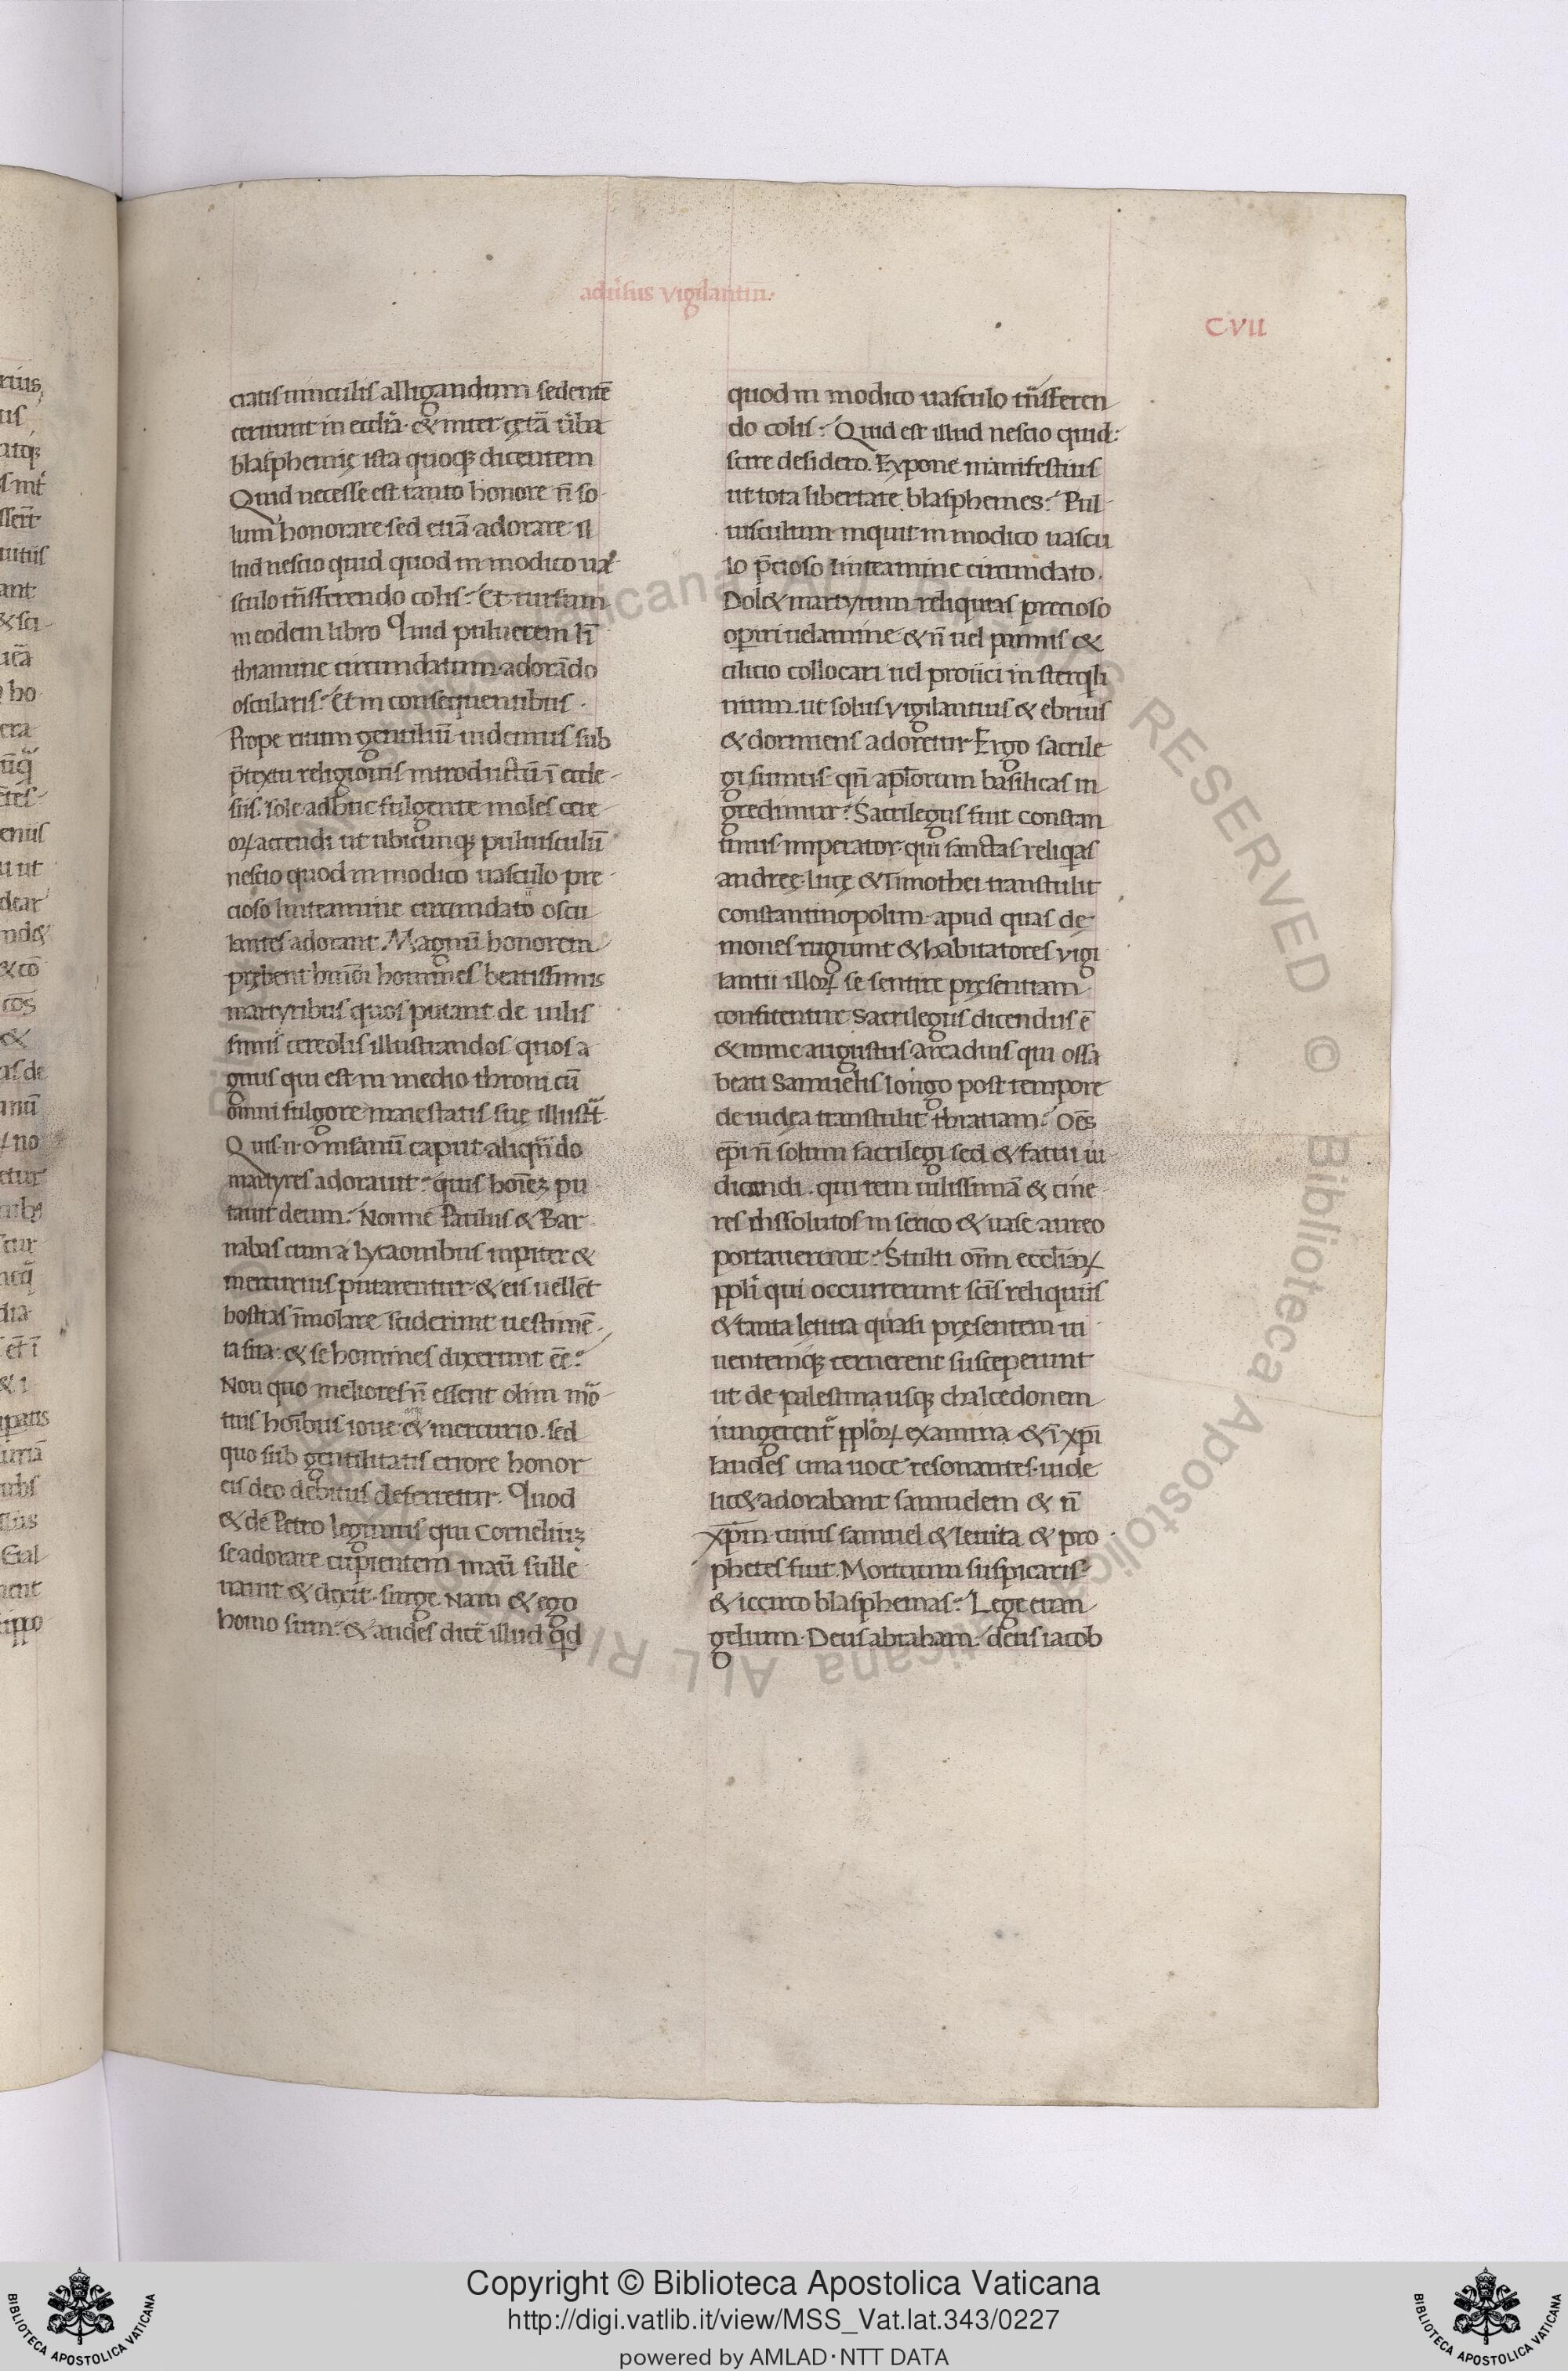 adũsus vigilantiũ.
CVII
ciatis uinculis alligandum sedentẽ
cernunt in eccl̃ia. & inter cętã ũba
blasphemię ista quoqꝫ dicentem
Quid necesse est tanto honore ñ so
lum honorare sed etiã adorare il
lud nescio quid quod in modico ua
sculo tñsferendo colis? Et rursum
in eodem libro Quid puluerem lĩ
thiamine circumdatum adorãdo
oscularis? Et in consequentibus.
Prope ritum gentiliũ uidemus sub
p̃textu religionis introductũ ĩ eccle
siis. sole adhuc fulgente moles cere
oꝝ accendi ut ubicunqꝫ puluisculũ
nescio quod in modico uasculo pre
cioso linteamine circundato oscu
lantes adorant. Magnũ honorem
prębent hmõi homines beatissimis
martyribus quos putant de uilis
simis cereolis illustrandos quos a
gnus qui est in medio throni cũ
omni fulgore maiestatis suę illustᷓt.
Quis n̄ o insanũ caput aliqñdo
martyres adorauit? quis hoĩeꝫ pu
tauit deum? Nonne Paulus & Bar
nabas cum a lycaonibus iupiter &
mercurius putarentur & eis uellẽt
hostias ĩmolare sciderunt uestimẽ
ta sua: & se homines dixerunt ẽe?
Non quo meliores ñ essent olim mõ
tuis hoĩbus ioue & mercurio. sed
quo sub gentilitatis errore honor
eis deo debitus deferretur. Quod
& de Petro legimus qui Corneliuꝫ
se adorare cupientem manũ sulle
uauit & dixit. surge. Nam & ego
homo sum? & audes dicẽ illud qd
quod in modico uasculo tñsferen
do colis? Quid est illud nescio quid:
scire desidero. Expone manifestius
ut tota libertate blasphemes? Pul
uisculum inquit in modico uascu
lo p̃cioso linteamine circundato.
Dol& martyrum reliquias precioso
operiri uelamine & ñ uel pannis &
cilicio collocari uel proiici in sterqli
nium. ut solus vigilantius & ebrius
& dormiens adoretur Ergo sacrile
gi sumus qñ apl̃orum basilicas in
gredimur? Sacrilegus fuit constan
tinus imperator qui sanctas reliqas
andreę lucę & Timothei transtulit
constantinopolim. apud quas de
mones rugiunt & habitatores vigi
lantii illoꝝ se sentire pręsentiam
confitentur. Sacrilegus dicendus ẽ
& nunc augustus arcadius qui ossa
beati Samuelis longo post tempore
de iudęa transtulit thraciam? Oẽs
epĩ ñ solum sacrilegi sed & fatui iu
dicandi. qui rem uilissimã & cine
res dissolutos in serico & uase aureo
portauerunt? Stulti oñm eccl̃iaꝝ
ppl̃i qui occurrerunt scĩs reliquiis
& tanta letitia quasi pręsentem ui
uentemqꝫ cernerent susceperunt
ut de palestina usqꝫ chalcedonem
iungerentᷣ ppl̃oꝝ examina & ĩ xp̃i
laudes una uoce resonantes. uide
lic& adorabant samuelem & ñ
xp̃m cuius samuel & leuita & pro
phetes fuit. Mortuum suspicaris
& iccirco blasphemas? Lege euan
gelium. Deus abraham. deus iacob
Copyright © Biblioteca Apostolica Vaticana
http://digi.vatlib.it/view/MSS_Vat.lat.343/0227
powered by AMLAD·NTT DATA
BIBLIOTECA APOSTOLICA VATICANA
BIBLIOTECA APOSTOLICA VATICANA